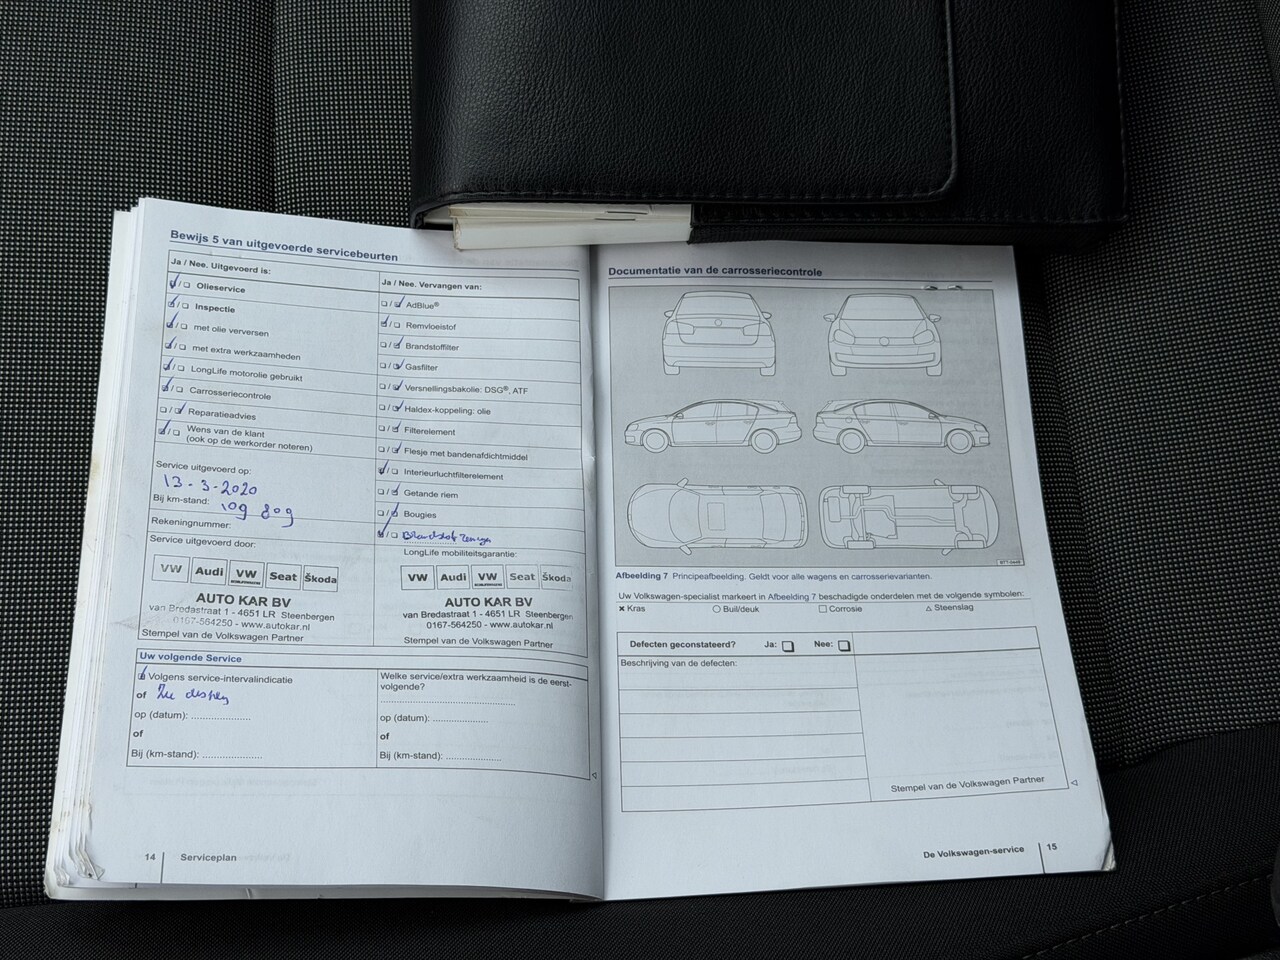 Bewijs 5 van uitgevoerde servicebeurten
Ja / Nee. Uitgevoerd is:
Olieservice
Inspectie
met olie verversen
met extra werkzaamheden
LongLife motorolie gebruikt
Carrosseriecontrole
Reparatieadvies
Wens van de klant
(ook op de werkorder noteren)
Service uitgevoerd op:
13-3-2020
Bij km-stand: 109 809
Rekeningnummer:
Service uitgevoerd door:
VW Audi VW Seat Škoda
AUTO KAR BV
van Bredastraat 1 - 4651 LR Steenbergen
0167-564250 - www.autokar.nl
Stempel van de Volkswagen Partner
Ja / Nee. Vervangen van:
AdBlue®
Remvloeistof
Brandstoffilter
Gasfilter
Versnellingsbakolie: DSG®, ATF
Haldex-koppeling: olie
Filterelement
Flesje met bandenafdichtmiddel
Interieurluchtfilterelement
Getande riem
Bougies
LongLife mobiliteitsgarantie:
VW Audi VW Seat Škoda
AUTO KAR BV
van Bredastraat 1 - 4651 LR Steenbergen
0167-564250 - www.autokar.nl
Stempel van de Volkswagen Partner
Uw volgende Service
Volgens service-intervalindicatie
of
op (datum): ....................
of
Bij (km-stand): ....................
Welke service/extra werkzaamheid is de eerst-
volgende?
op (datum): ....................
of
Bij (km-stand): ....................
14 Serviceplan
Documentatie van de carrosseriecontrole
Afbeelding 7 Principeafbeelding. Geldt voor alle wagens en carrosserievarianten.
Uw Volkswagen-specialist markeert in Afbeelding 7 beschadigde onderdelen met de volgende symbolen:
× Kras ○ Buil/deuk □ Corrosie △ Steenslag
Defecten geconstateerd? Ja: Nee:
Beschrijving van de defecten:
Stempel van de Volkswagen Partner
De Volkswagen-service 15